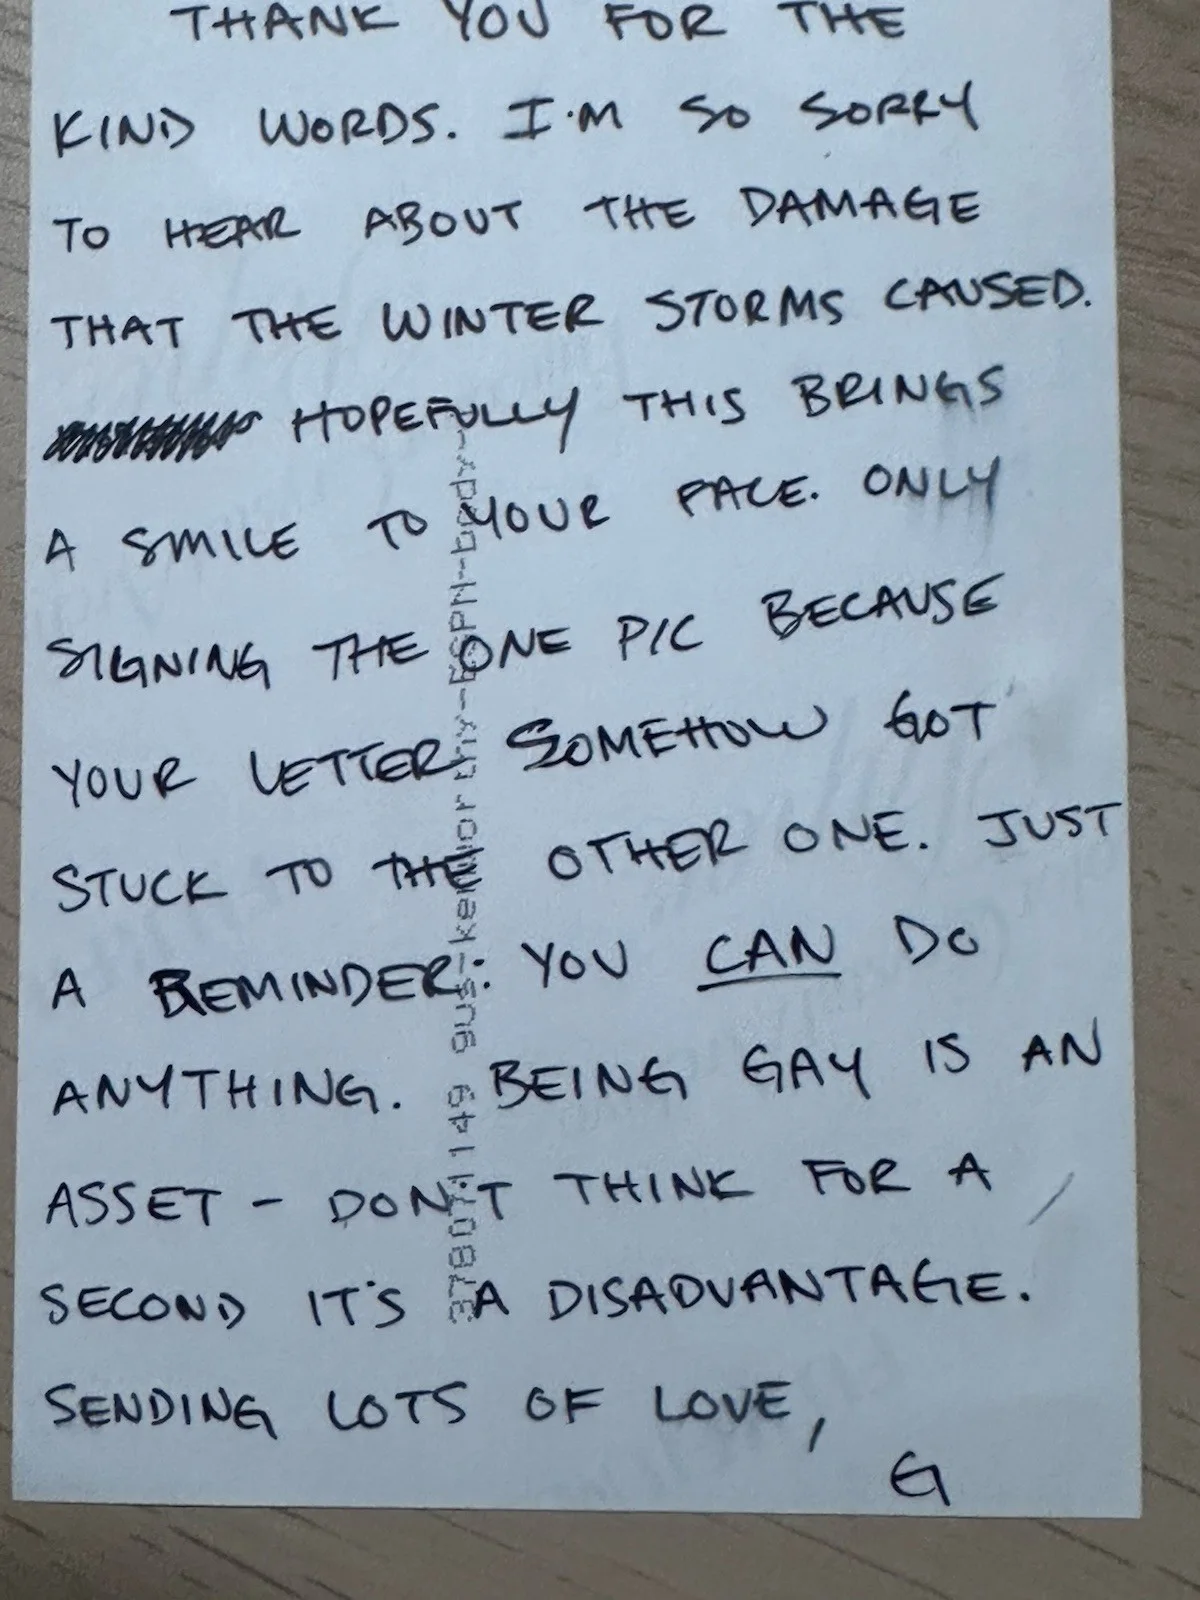 THANK YOU FOR THE
KIND WORDS. I'M SO SORRY
TO HEAR ABOUT THE DAMAGE
THAT THE WINTER STORMS CAUSED.
HOPEFULLY THIS BRINGS
A SMILE TO YOUR FACE. ONLY
SIGNING THE ONE PIC BECAUSE
YOUR LETTER SOMEHOW GOT
STUCK TO THE OTHER ONE. JUST
A REMINDER: YOU CAN DO
ANYTHING. BEING GAY IS AN
ASSET - DON'T THINK FOR A
SECOND IT'S A DISADVANTAGE.
SENDING LOTS OF LOVE,
G
378071149 gus-kenworthy-ESPN-body-